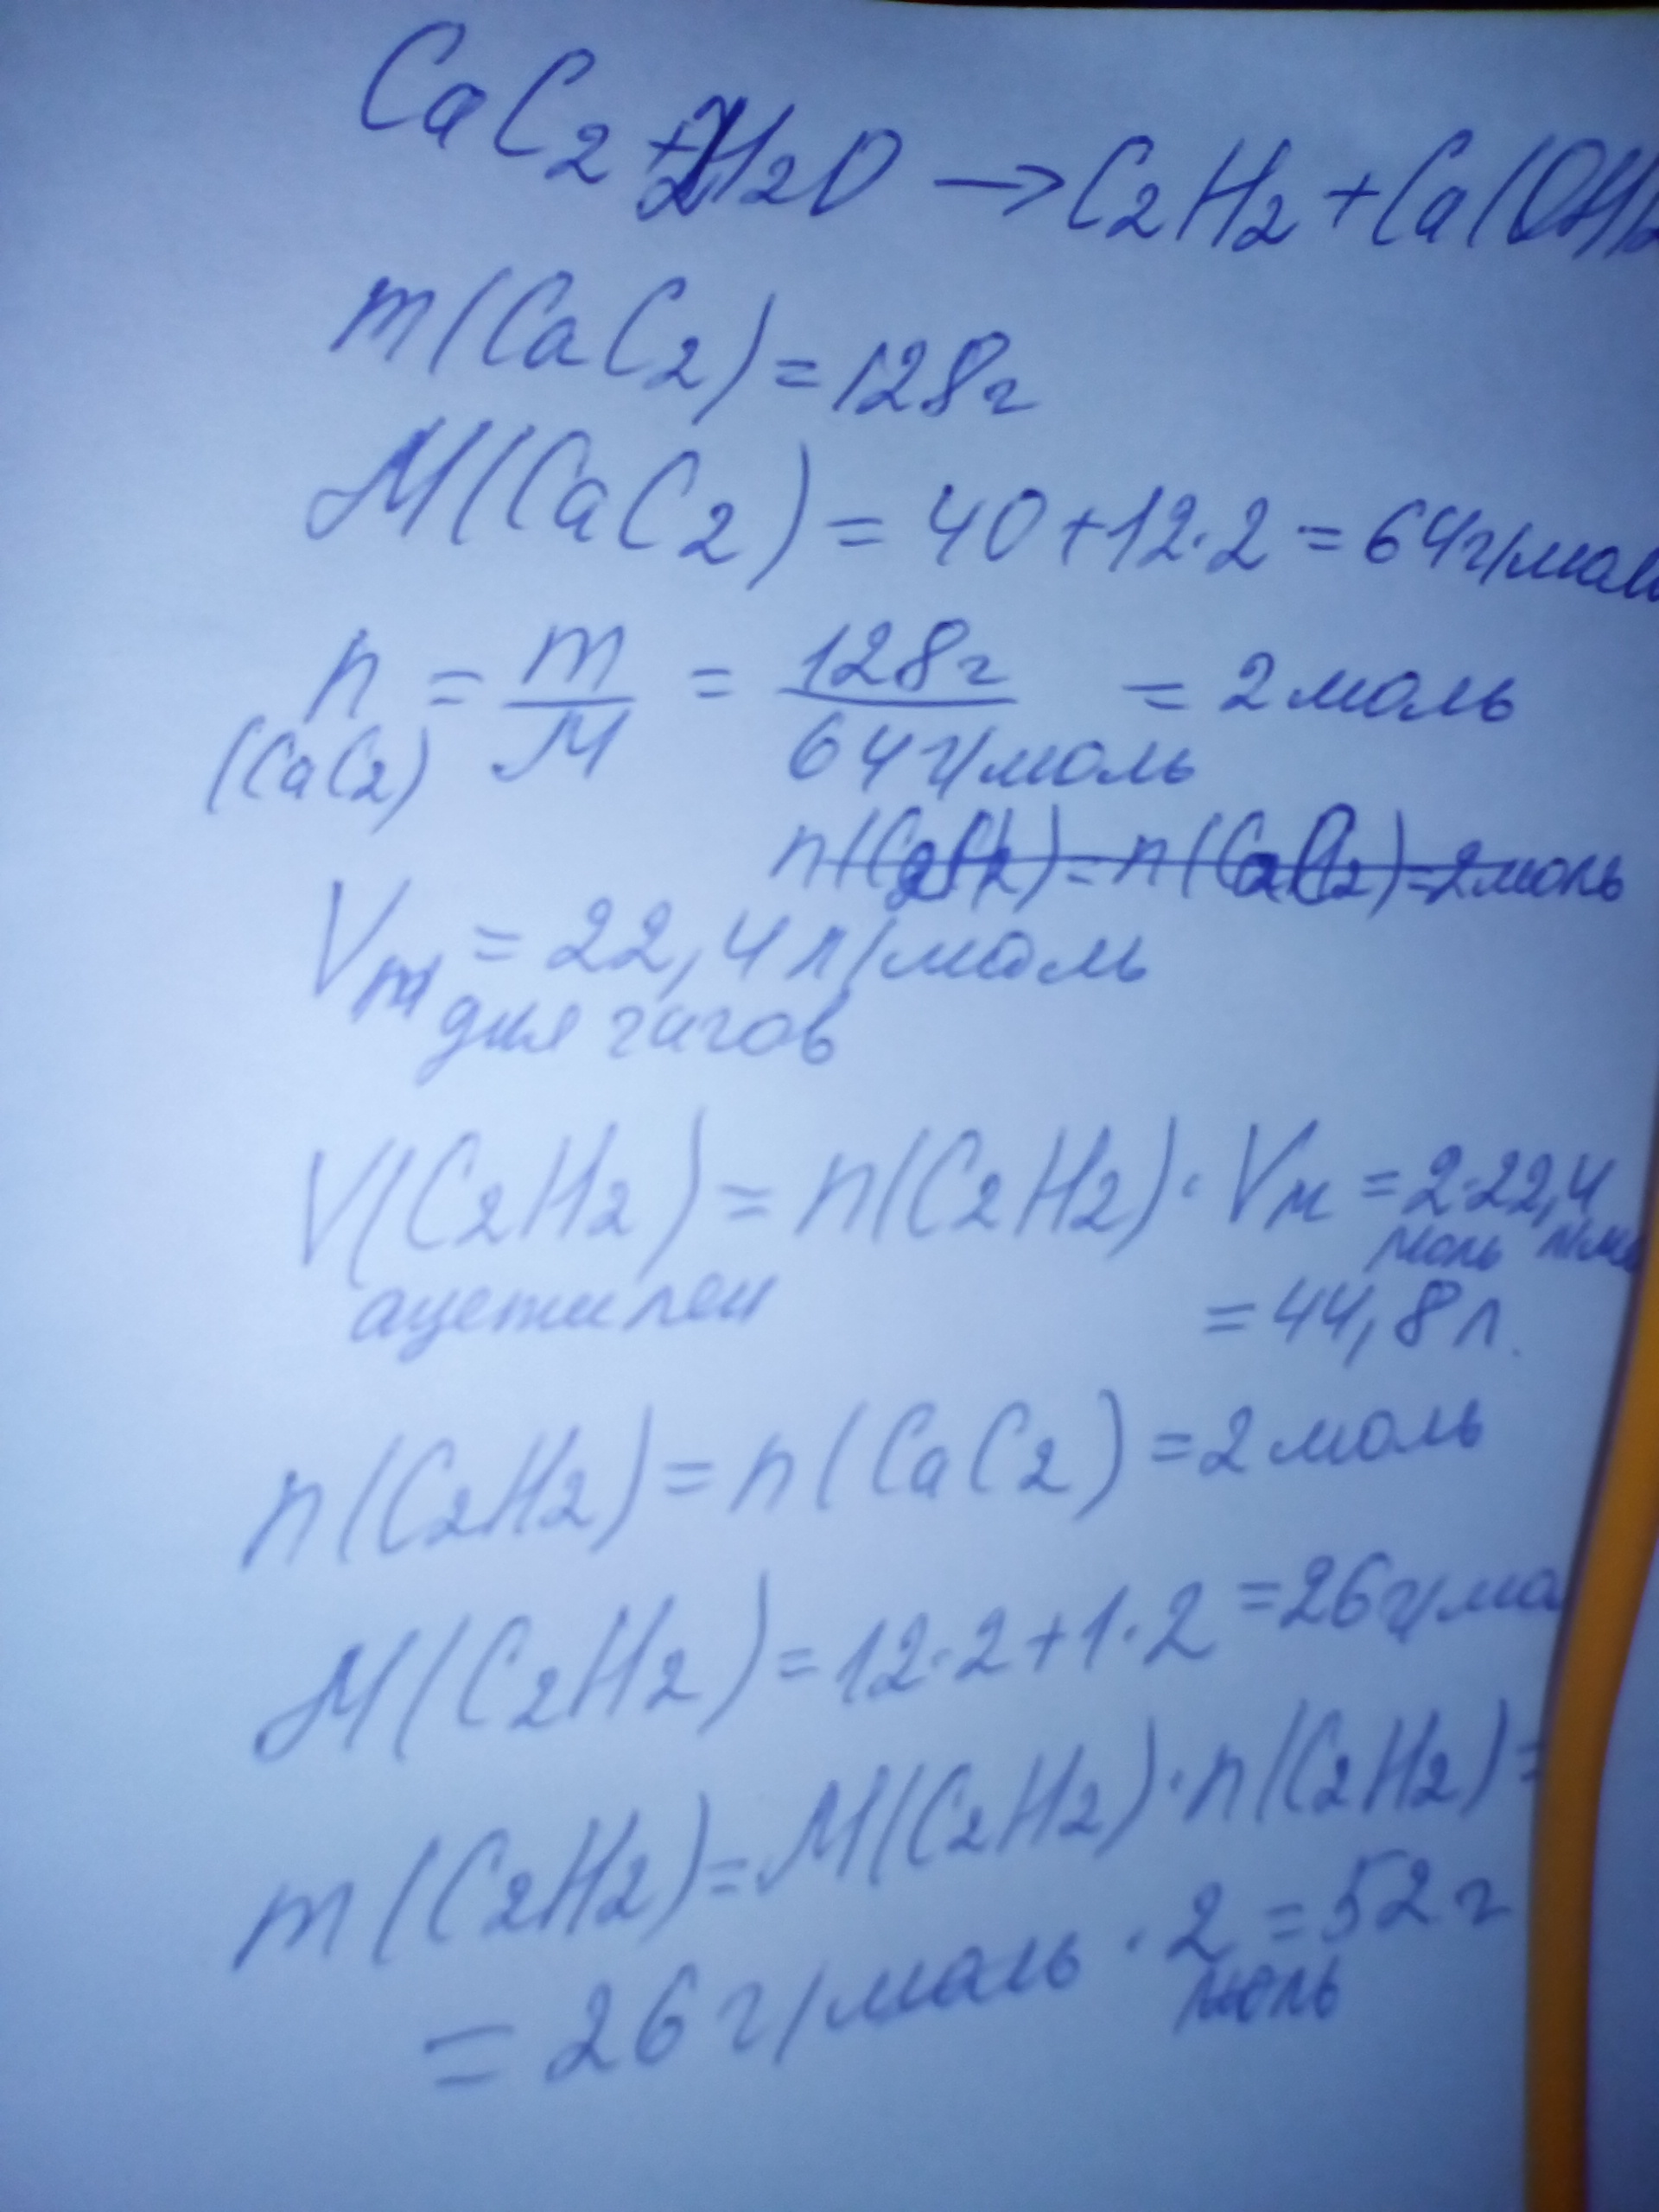 CaC2 + 2H2O → C2H2 + Ca(OH)2
m(CaC2) = 128г
M(CaC2) = 40+12·2 = 64г/мол
n (CaC2) = m/M = 128г/64г/моль = 2 моль
n(C2H2) = n(CaC2) = 2моль
Vm = 22,4 л/моль
для газов
V(C2H2) = n(C2H2)·Vm = 2·22,4
ацетилен моль л/мо
= 44,8 л.
n(C2H2) = n(CaC2) = 2 моль
M(C2H2) = 12·2+1·2 = 26г/мо
m(C2H2) = M(C2H2)·n(C2H2) =
= 26 г/моль · 2 = 52 г
моль